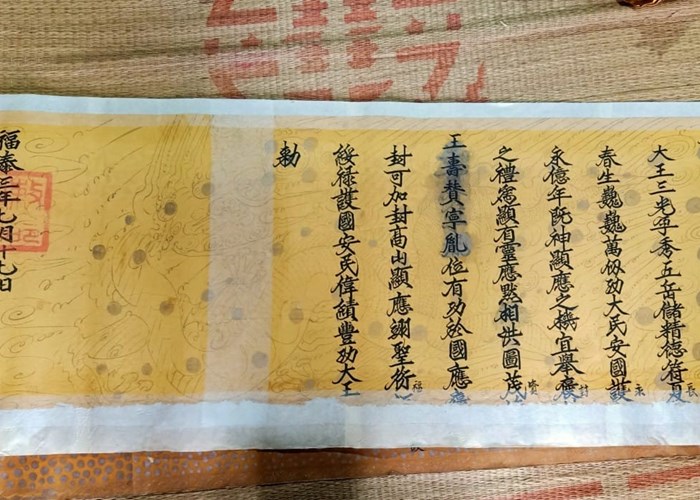 大王三光孕秀五岳儲精德符
春生巍巍萬仞功大民安國護
永億年既神顯應之機宜舉
之禮為顯有靈應默相洪圖茂
王壽贊寧胤位有功於國應
封可加封高山顯應翊聖衍
綏祿護國安民偉績豐功大王
勅
福泰三年七月十七日